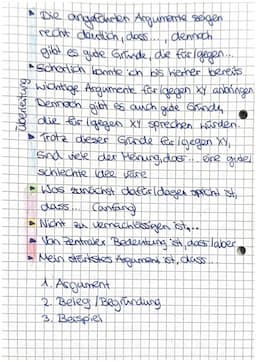 Die angeführten Argumente zeigen
recht deutlich, dass..., dennoch
gibt es gute Gründe, die für/gegen...
Sicherlich konnte ich bis hierher bereits
wichtige Argumente für/gegen XY anbringen.
Dennoch gibt es auch gute Gründe,
die für/gegen XY sprechen würden.
Trotz dieser Gründe für/gegen XY,
sind viele der Meinung, dass... eine gute/
schlechte Idee wäre
Was zunächst dafür/dagegen spricht ist,
dass... (anfang)
Nicht zu vernachlässigen ist,...
Von zentraler Bedeutung ist, dass/aber
Mein stärkstes Argument ist, dass...
1. Argument
2. Beleg/Begründung
3. Beispiel
Überleitung